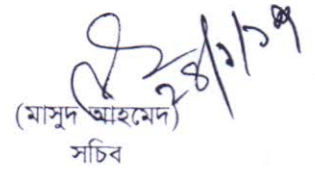 ২৪/১/১৭
(মাসুদ আহমেদ)
সচিব